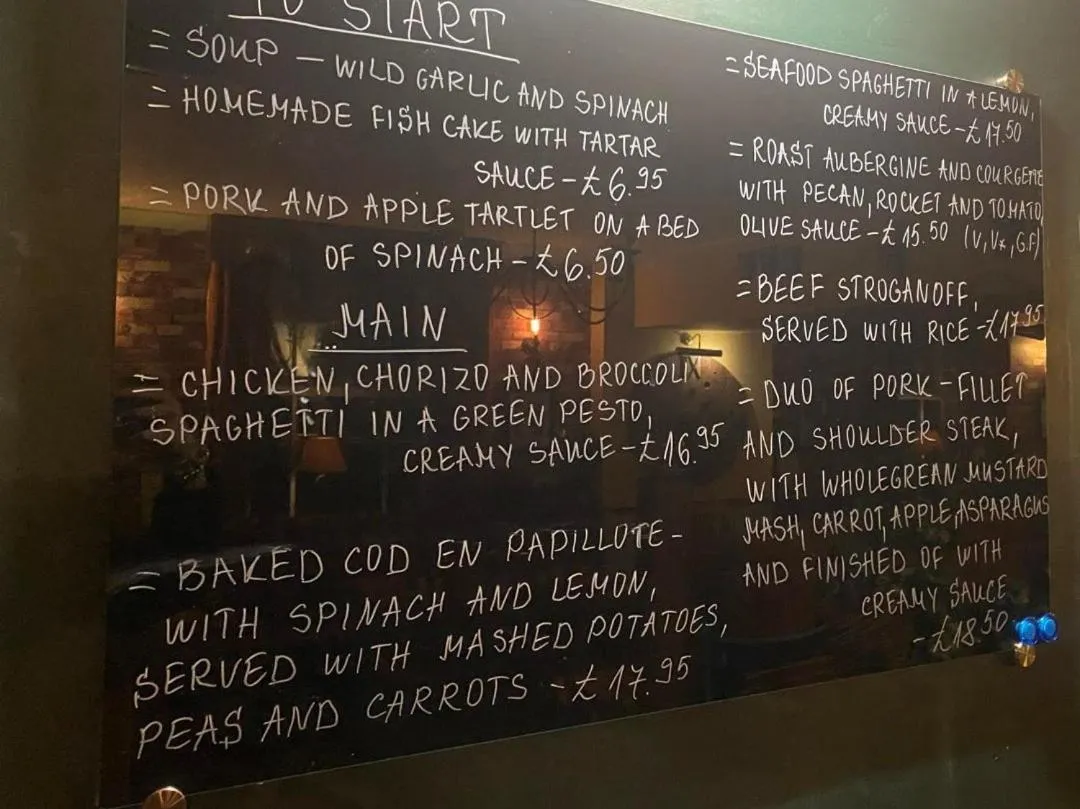 TO START
= SOUP – WILD GARLIC AND SPINACH
= HOMEMADE FISH CAKE WITH TARTAR
SAUCE – £6.95
= PORK AND APPLE TARTLET ON A BED
OF SPINACH – £6.50
MAIN
= CHICKEN, CHORIZO AND BROCCOLI
SPAGHETTI IN A GREEN PESTO,
CREAMY SAUCE – £16.95
= BAKED COD EN PAPILLOTE –
WITH SPINACH AND LEMON,
SERVED WITH MASHED POTATOES,
PEAS AND CARROTS – £17.95
= SEAFOOD SPAGHETTI IN A LEMON,
CREAMY SAUCE – £17.50
= ROAST AUBERGINE AND COURGETTE
WITH PECAN, ROCKET AND TOMATO,
OLIVE SAUCE – £15.50 (V, V*, G.F)
= BEEF STROGANOFF,
SERVED WITH RICE – £17.95
= DUO OF PORK – FILLET
AND SHOULDER STEAK,
WITH WHOLEGREAN MUSTARD
MASH, CARROT, APPLE, ASPARAGUS
AND FINISHED OF WITH
CREAMY SAUCE
– £18.50